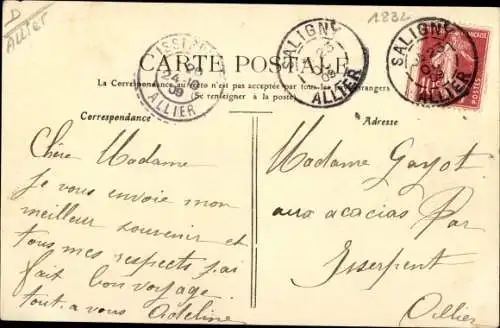 D
Allier
1832
CARTE POSTALE
La Correspondance au recto n'est pas acceptée par tous les pays étrangers
(Se renseigner à la poste)
SALIGNY
ALLIER
SALIGNY
ALLIER
ALLIER
POSTES
Correspondance
Adresse
Chère Madame
Je vous envoie mon
meilleur souvenir et
tous mes respects j'ai
fait bon voyage
tout a vous Adeline
Madame Gayot
aux acacias Par
Isserpent
Allier